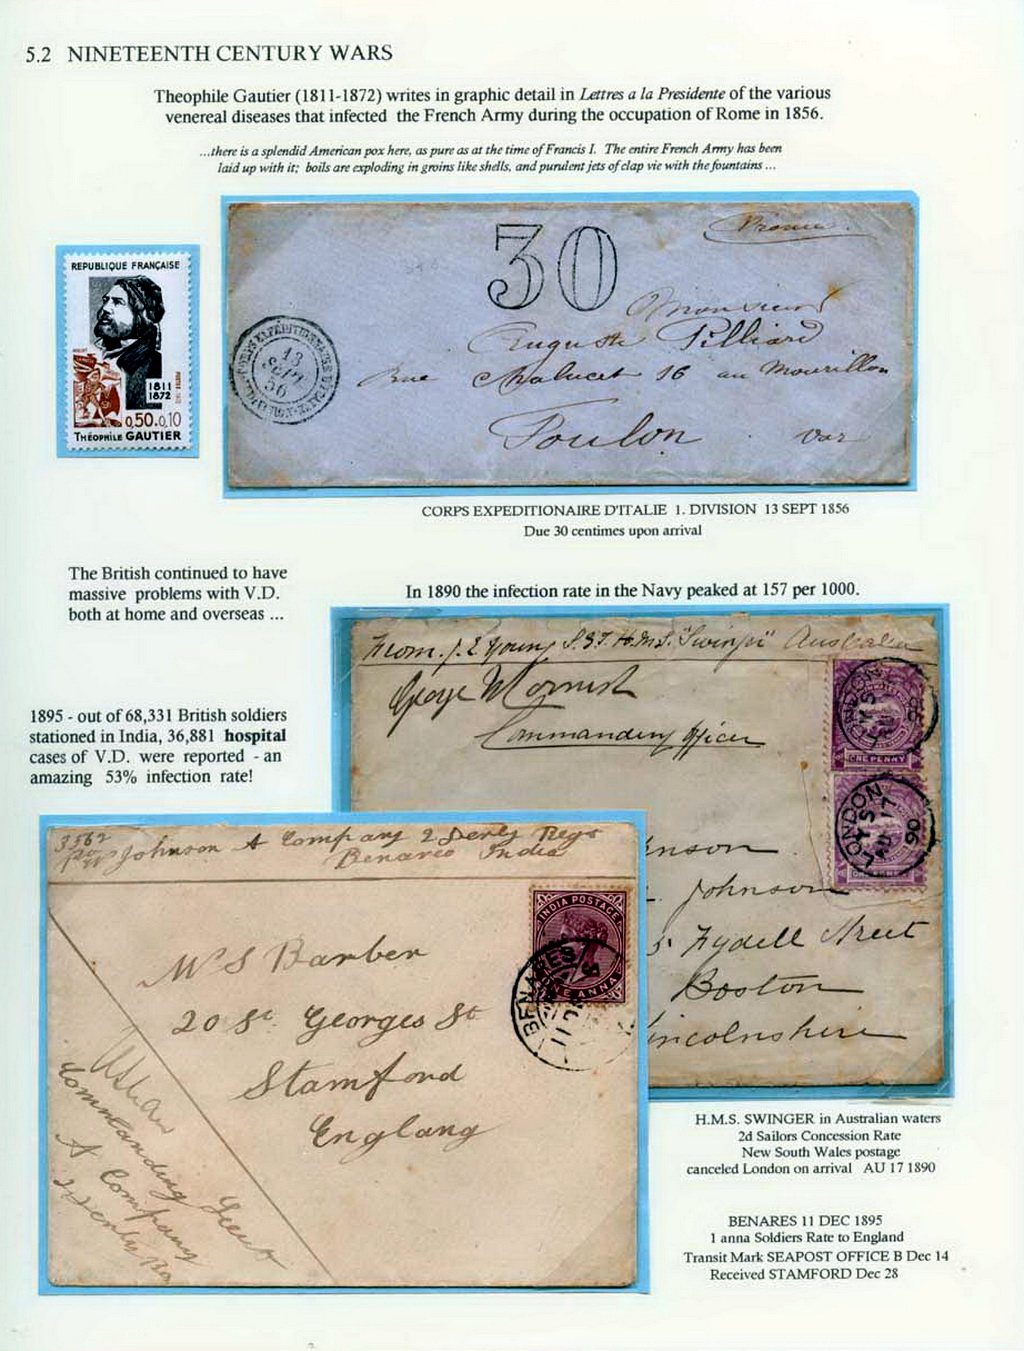 5.2 NINETEENTH CENTURY WARS
Theophile Gautier (1811-1872) writes in graphic detail in Lettres a la Presidente of the various
venereal diseases that infected the French Army during the occupation of Rome in 1856.
...there is a splendid American pox here, as pure as at the time of Francis I. The entire French Army has been
laid up with it; boils are exploding in groins like shells, and purulent jets of clap vie with the fountains ...
REPUBLIQUE FRANÇAISE
1811
1872
0,50+0,10
THÉOPHILE GAUTIER
30
Monsieur
Auguste Pilliard
Rue Chalucet 16 au Mourillon
Toulon Var
13
SEPT
56
CORPS EXPEDITIONAIRE D'ITALIE 1. DIVISION 13 SEPT 1856
Due 30 centimes upon arrival
The British continued to have
massive problems with V.D.
both at home and overseas ...
In 1890 the infection rate in the Navy peaked at 157 per 1000.
1895 - out of 68,331 British soldiers
stationed in India, 36,881 hospital
cases of V.D. were reported - an
amazing 53% infection rate!
From. J. E Young H.M.S. "Swinger" Australia
Commanding Officer
ONE PENNY
LONDON
AU 17
90
ONE PENNY
nson
Johnson
5. Fydell Street
Boston
incolnshire
3562
Johnson A Company 2 Derby Regt
Benares India
INDIA POSTAGE
ONE ANNA
BENARES
Mrs Barber
20 St Georges St
Stamford
England
Commanding Lieut
A Company
2 Derby
H.M.S. SWINGER in Australian waters
2d Sailors Concession Rate
New South Wales postage
canceled London on arrival AU 17 1890
BENARES 11 DEC 1895
1 anna Soldiers Rate to England
Transit Mark SEAPOST OFFICE B Dec 14
Received STAMFORD Dec 28